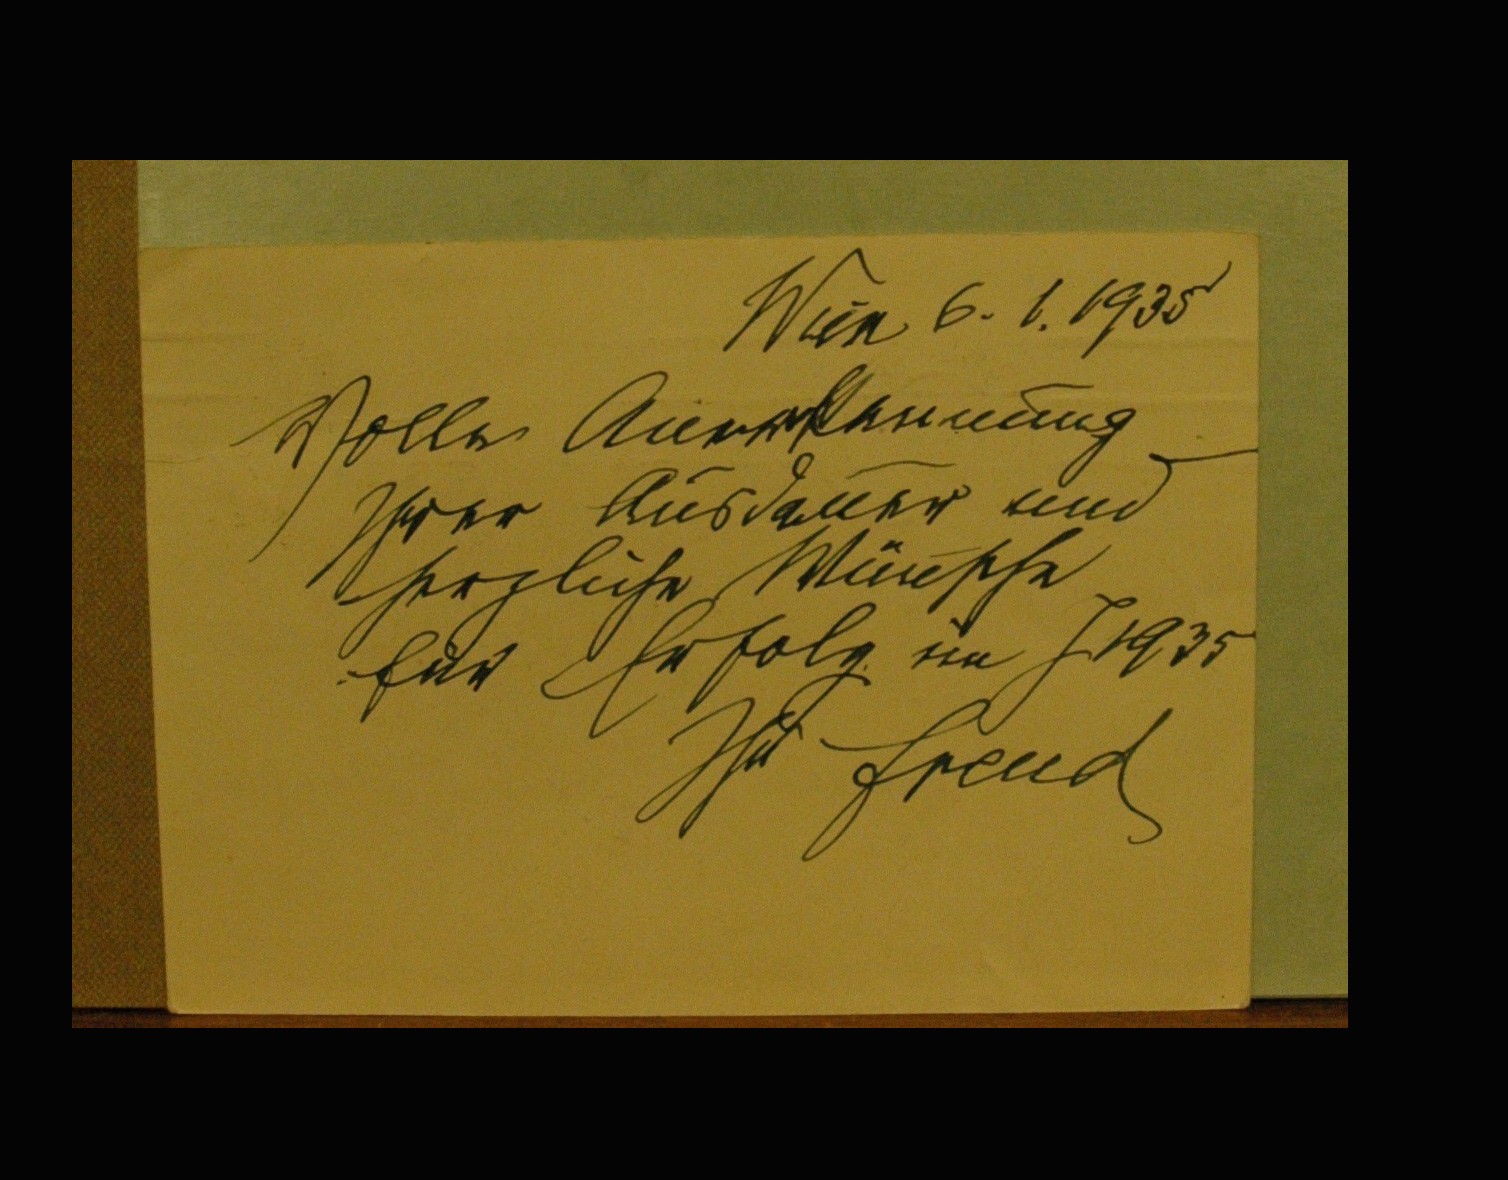 Wien 6. 1. 1935
Volle Anerkennung
Ihrer Ausdauer und
herzliche Wünsche
für Erfolg im J 1935
Ihr Freud